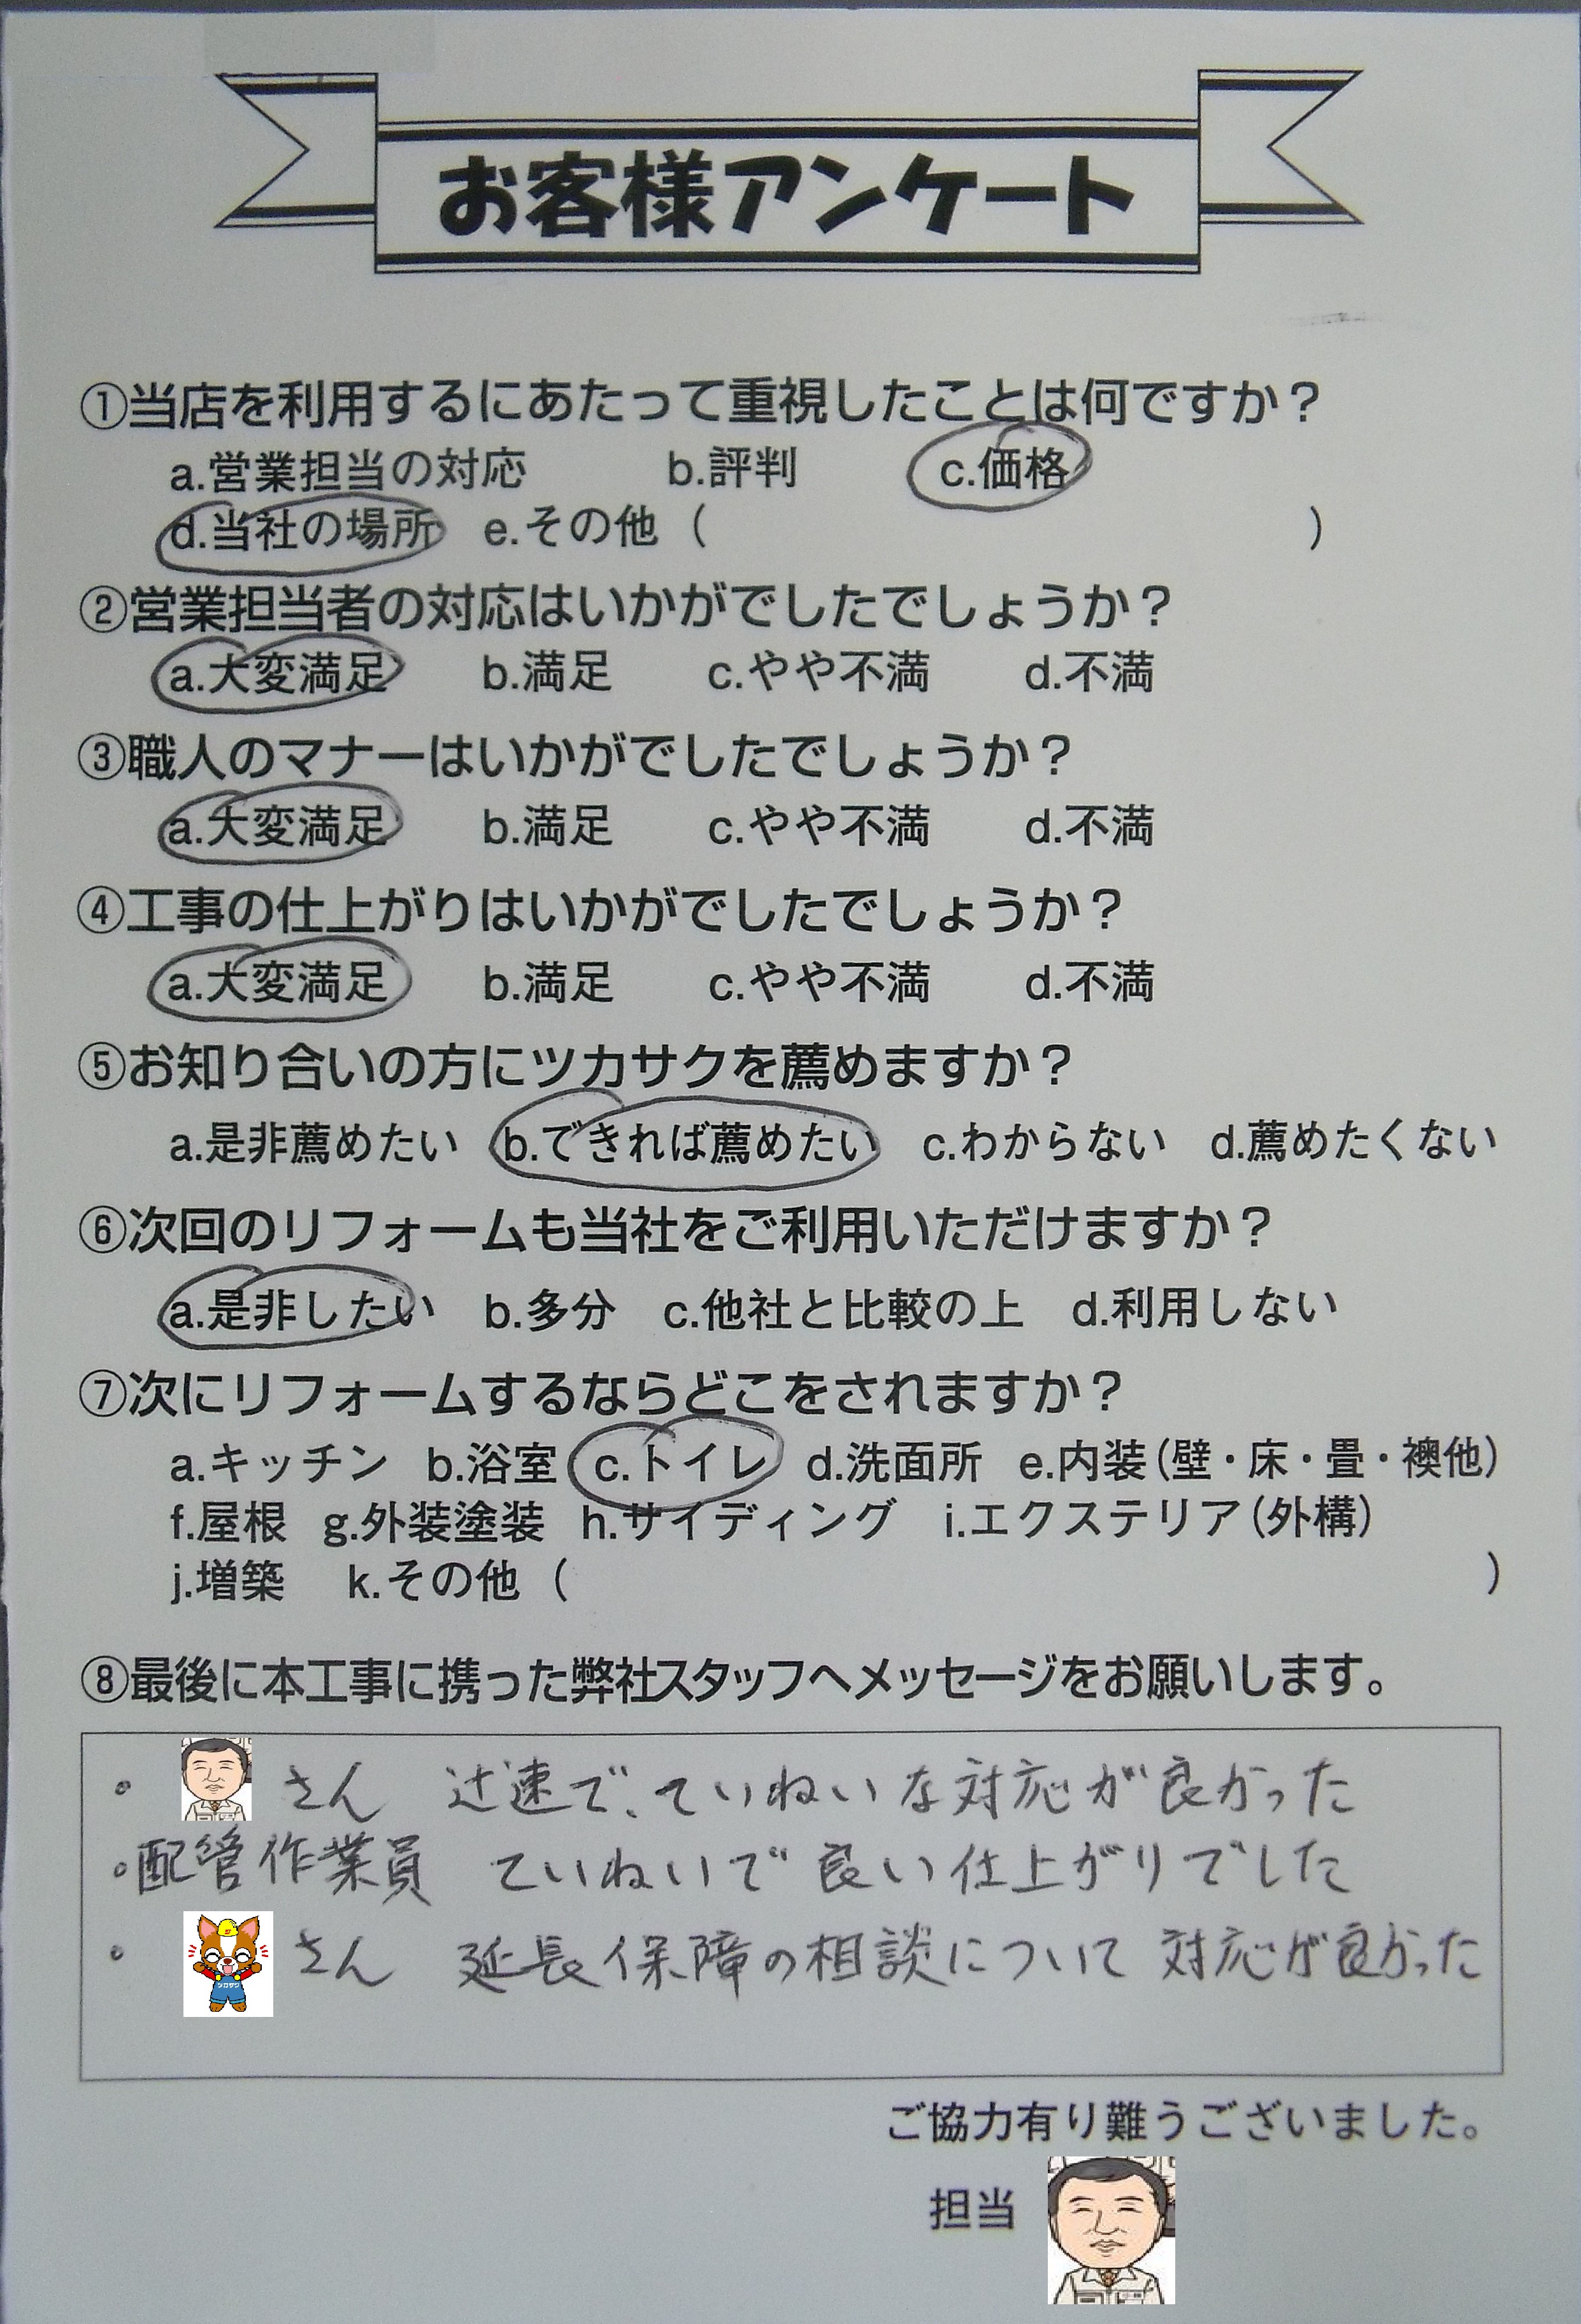 お客様アンケート
①当店を利用するにあたって重視したことは何ですか？
a.営業担当の対応 b.評判 c.価格
d.当社の場所 e.その他（ ）
②営業担当者の対応はいかがでしたでしょうか？
a.大変満足 b.満足 c.やや不満 d.不満
③職人のマナーはいかがでしたでしょうか？
a.大変満足 b.満足 c.やや不満 d.不満
④工事の仕上がりはいかがでしたでしょうか？
a.大変満足 b.満足 c.やや不満 d.不満
⑤お知り合いの方にツカサクを薦めますか？
a.是非薦めたい b.できれば薦めたい c.わからない d.薦めたくない
⑥次回のリフォームも当社をご利用いただけますか？
a.是非したい b.多分 c.他社と比較の上 d.利用しない
⑦次にリフォームするならどこをされますか？
a.キッチン b.浴室 c.トイレ d.洗面所 e.内装（壁・床・畳・襖他）
f.屋根 g.外装塗装 h.サイディング i.エクステリア（外構）
j.増築 k.その他（ ）
⑧最後に本工事に携った弊社スタッフへメッセージをお願いします。
・ さん 速で、ていねいな対応が良かった
・配管作業員 ていねいで良い仕上がりでした
・ さん 延長保障の相談について 対応が良かった
ご協力有り難うございました。
担当